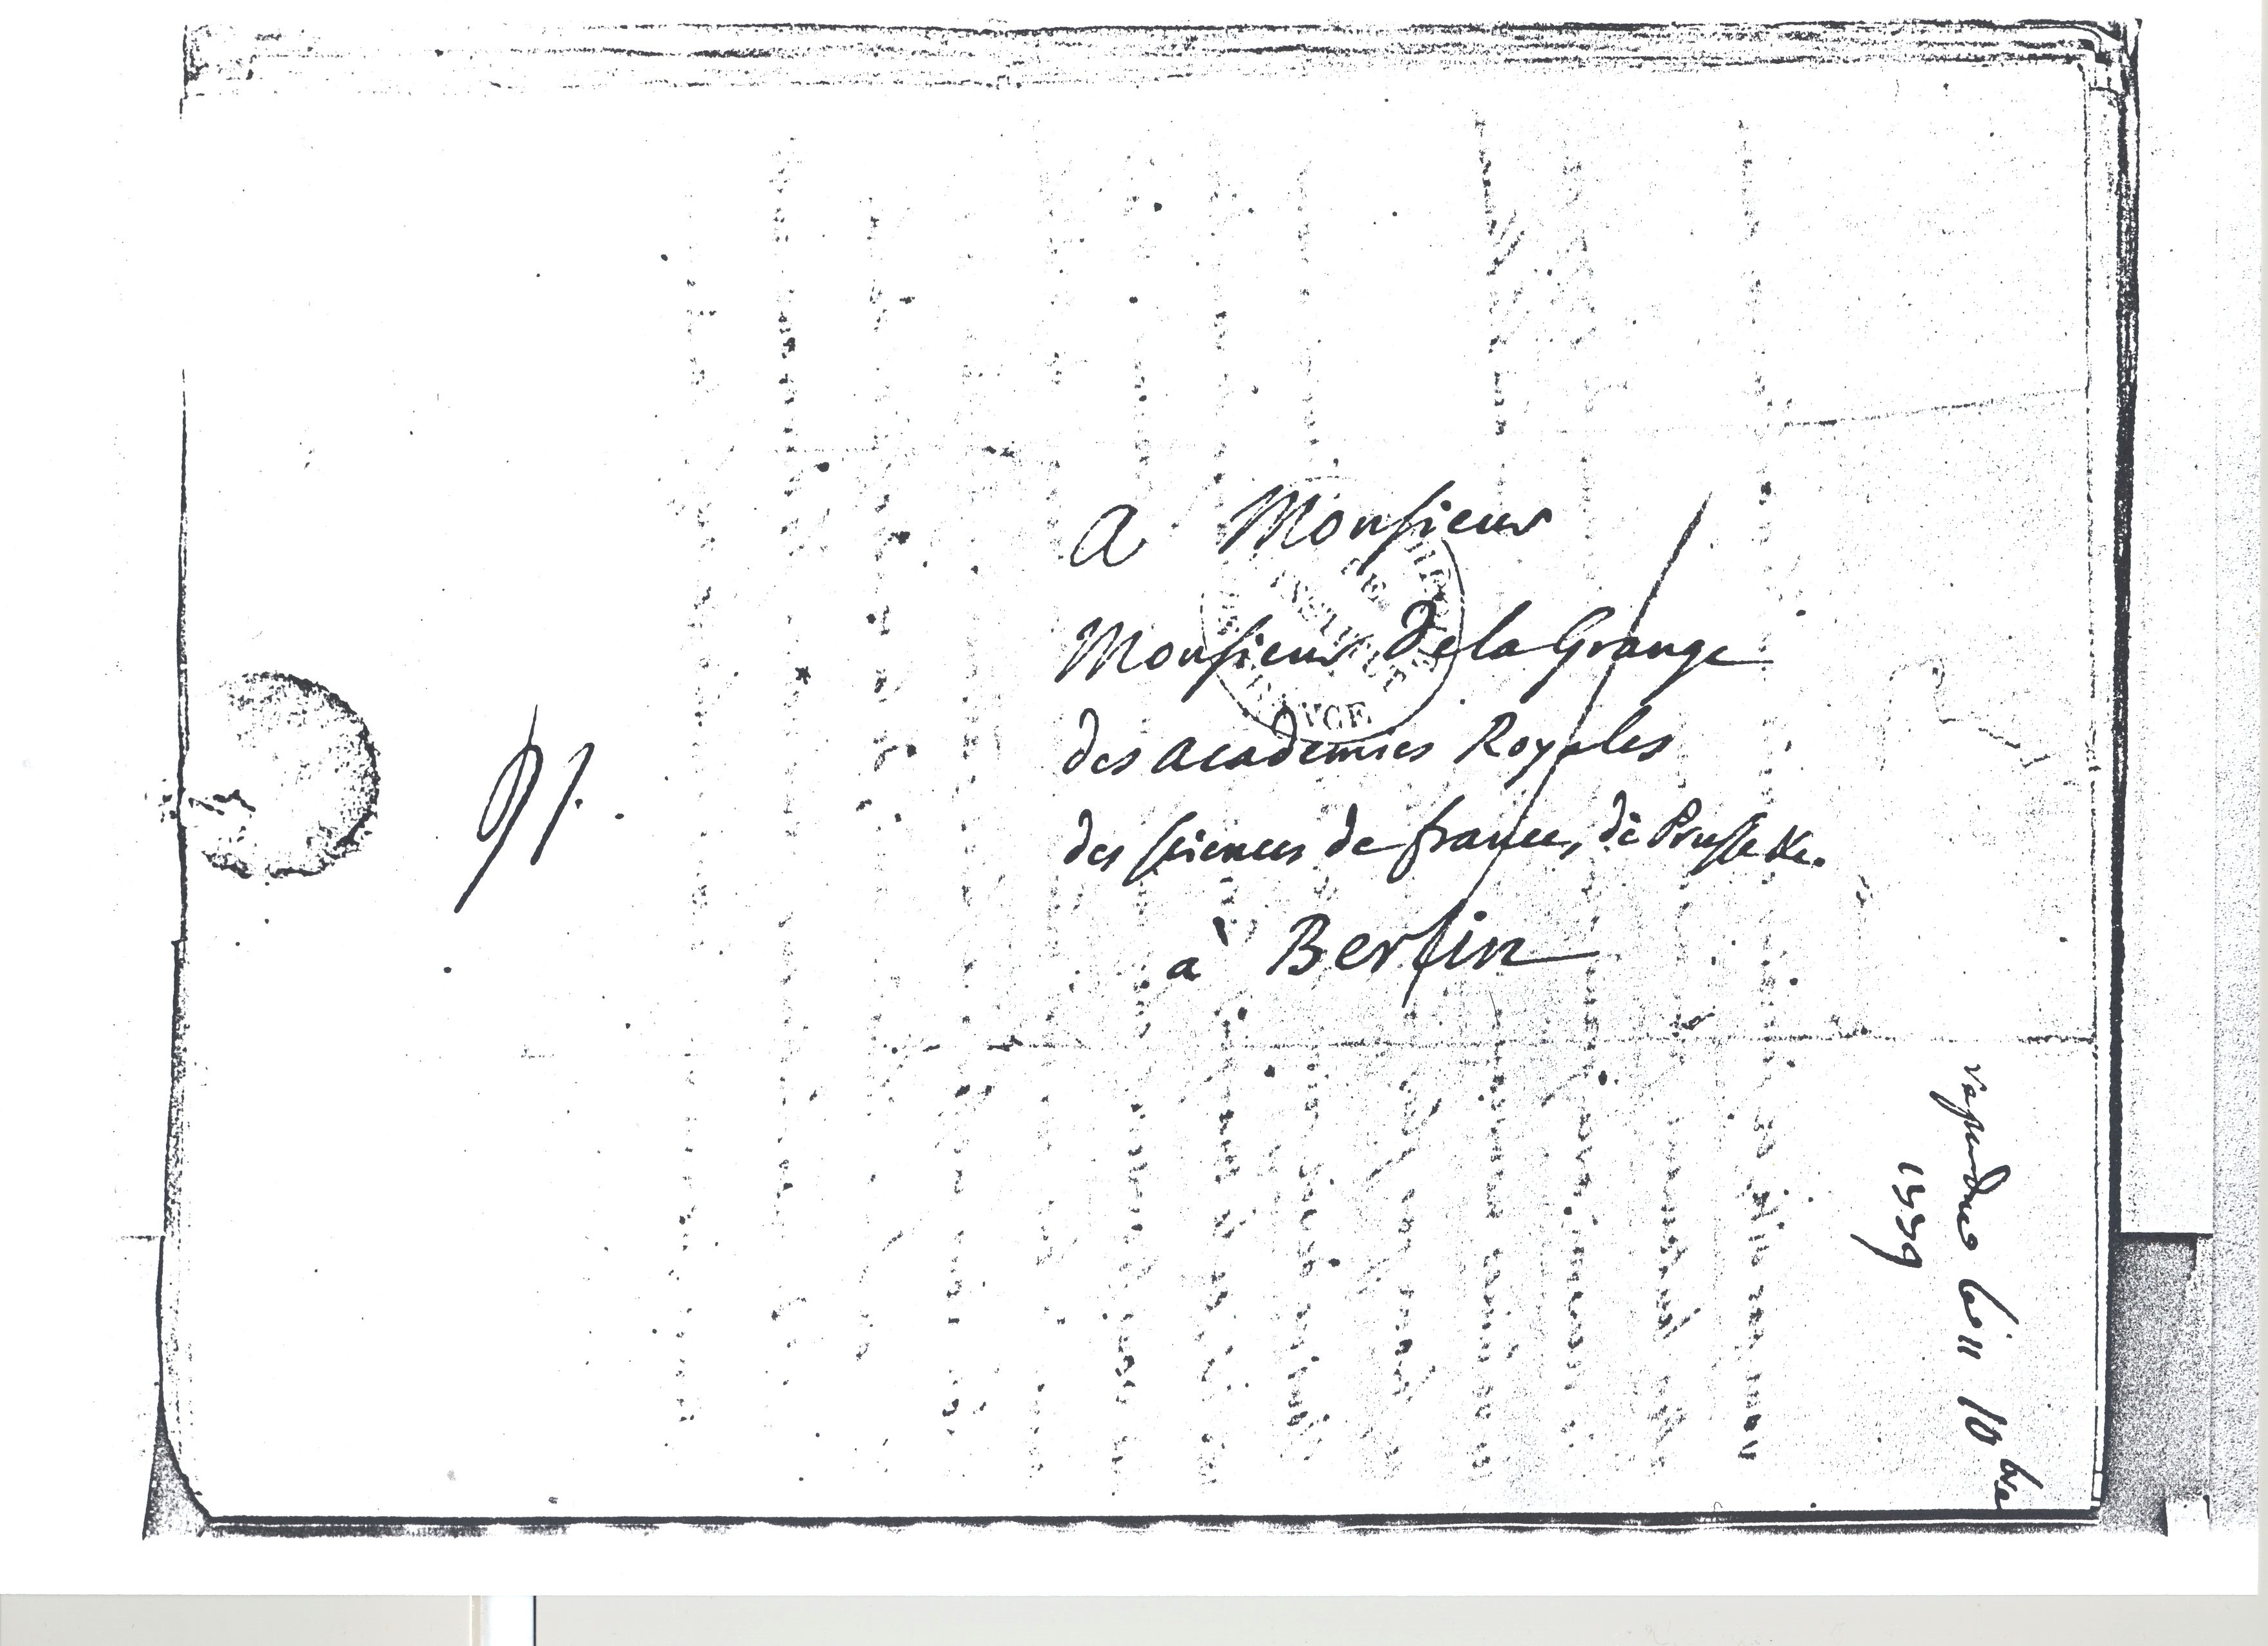 A Monsieur
Monsieur de la Grange
des academies Royales
des sciences de france, de Prusse &c.
à Berlin
le 11 10bre
1779
DE
INSTITUT